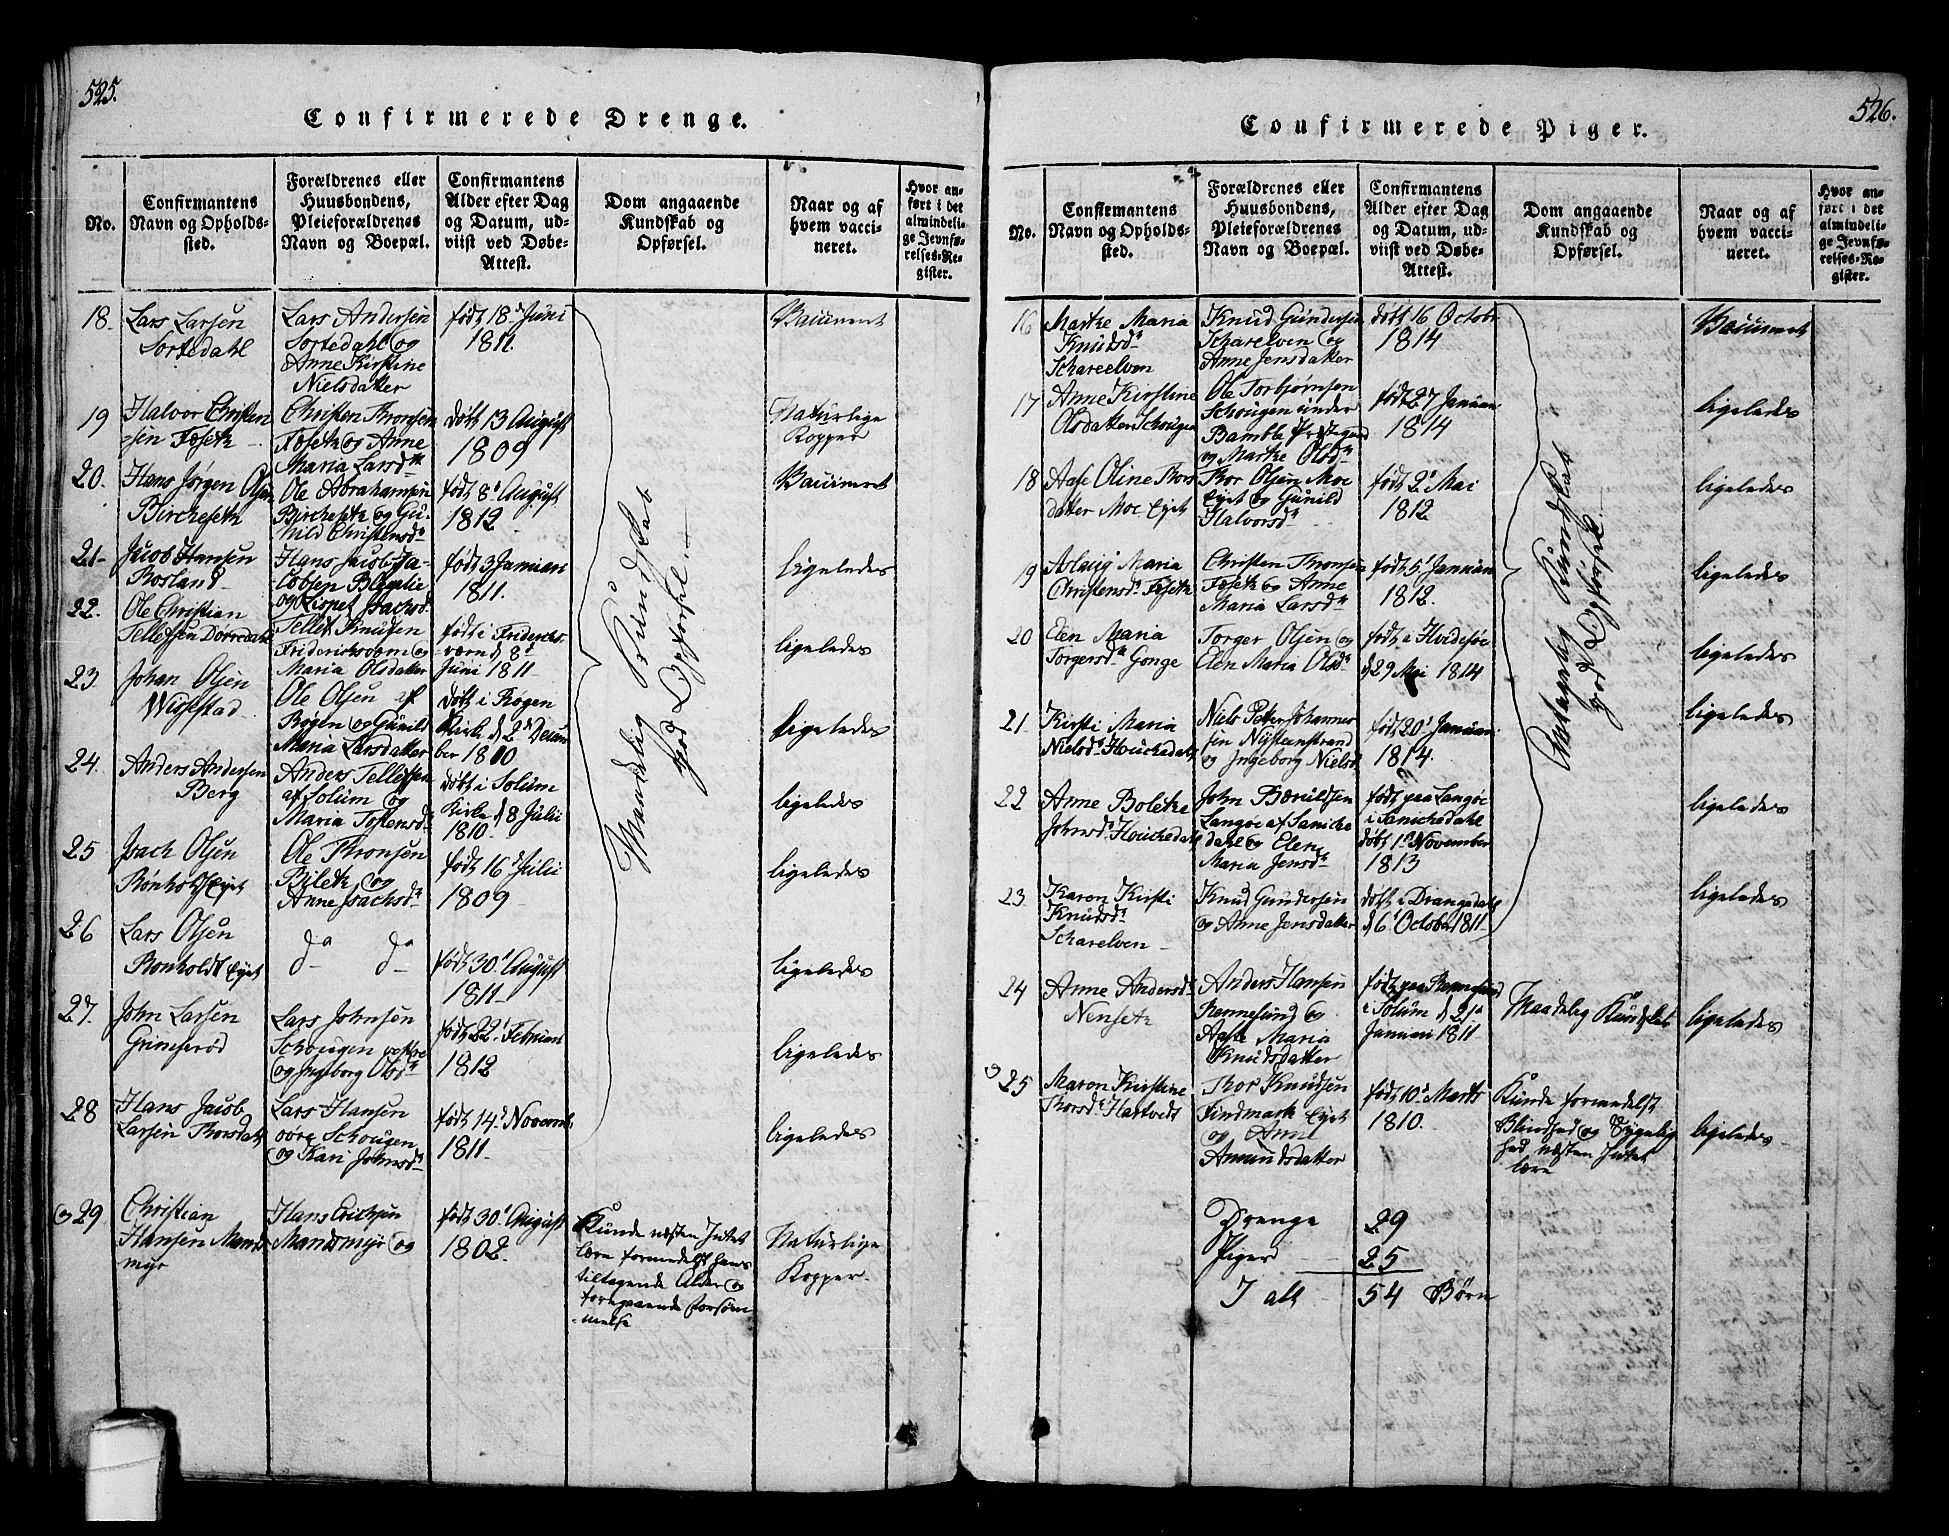 525.
Confirmerede Drenge.
No.
Confirmantens
Navn og Opholds-
sted.
Forældrenes eller
Huusbondens,
Pleieforældrenes
Navn og Boepæl.
Confirmantens
Alder efter Dag
og Datum, ud-
viist ved Døbe-
Attest.
Dom angaaende
Kundskab og
Opførsel.
Naar og af
hvem vacci-
neret.
Hvor an-
ført i det
almindeli-
ge Jevnfø-
relses-Re-
gister.
18
Lars Larsen
Sortedahl
Lars Andersen
Sortedahl og
Anne Kirstine
Nielsdatter
født 18d Juni
1811.
Vaccineret
19
Halvor Christen
sen Foseth
Christen Thronsen
Foseth og Anne
Maria Larsdtr
døbt 13 August
1809
Naturlige
Kopper
20.
Hans Jørgen Olsen
Bircheseth
Ole Abrahamsen
Bircheseth og Gu-
nild Christensdr
født 8d August
1812
Vaccineret
21-
Jacob Hansen
Rosland
Hans Jacob Ja-
cobsen
og Lispet Isachsd
født 3 Januari
1811.
ligeledes
22.
Ole Christian
Tellefsen Dørredahl
Tellef Knudsen
Friderichsværn og
Maria Olsdatter
født i Friderichs-
værn d 8d
Juni 1811
ligeledes
23
Johan Olsen
Wigstad
Ole Olsen af
Røgen og Gunild
Maria Larsdatter
døbt i Røgen
Kirke d 2d Decem
ber 1810
ligeledes
24.
Anders Andersen
Berg
Anders Tellefsen
af Solum og
Maria Tostensd
døbt i Solum
Kirke d 8 Julii
1810
ligeledes
25
Isach Olsen
Rønholt Eyet
Ole Thronsen
Bileth og
Anne Isachsdr
født 16d Julii
1809
ligeledes
26
Lars Olsen
Ronholdt Eyet
do do
født 30d August
1811
ligeledes
27.
John Larsen
Grimsrød
Lars Johnsen
Schougen vestre
og Ingeborg Olsdr
født 22d Februari
1812
ligeledes
28
Hans Jacob
Larsen Rorsdahl
Lars Hansen
øvre Schougen
og Kari Johnsdr
født 14d Novemb:
1811
ligeledes
Maadelig Kundskab
god Opførsel
29
Christian
Hansen Mands
myr
Hans Erichsen
Mandsmyr og
født 30d August
1802
Kunde næsten Intet
lære formedelst hans
tiltagende Alder og
foregaaende Forsøm
-melse
Naturlige
Kopper
526.
Confirmerede Piger.
No.
Confirmantens
Navn og Opholds-
sted.
Forældrenes eller
Huusbondens,
Pleieforældrenes
Navn og Boepæl.
Confirmantens
Alder efter Dag
og Datum, ud-
viist ved Døbe-
Attest.
Dom angaaende
Kundskab og
Opførsel.
Naar og af
hvem vacci-
neret.
Hvor an-
ført i det
almindeli-
ge Jevnfø-
relses-Re-
gister.
16
Marthe Maria
Knudsdr
Schareelven
Knud Gundersen
Scharelven og
Anne Jensdatter
døbt 16 Octobr
1814
Vaccineret
17
Anne Kirstine
Olsdatter Schougen
Ole Torbjørnsen
Schougen under
Bamble Prestegaard
og Marthe Olsdr
født 27 Januari
1814
ligeledes
18
Aase Oline Thors
datter Moe Eyet
Thor Olsen Moe
Eyet og Gunild
Halvorsdr
født 2d Mai
1812
ligeledes
19
Aslaug Maria
Christensdr Foseth
Christen Thronsen
Foseth og Anne
Maria Larsdtr
født 5d Januari
1812.
ligeledes
20
Elen Maria
Torgersdtr Gonge
Torger Olsen og
Elen Maria Olsdr
født i Hvidesøe
d 29 Mai 1814
ligeledes
21
Kirsti Maria
Nielsdr Houchedahl
Niels Peter Johannes
sen Nysteenstrand
og Ingeborg Nielsd
født 20d Januari
1814.
ligeledes
22
Anne Bolethe
Johnsdr Houchedahl
John Bærulfsen
Langøe af Sanicke
dahl og Elen
Maria Jensdr
født paa Langøe
i Sanichedahl
døbt 1d November
1813
ligeledes
23
Karen Kirsti
Knudsdr
Scharelven
Knud Gundersen
og Anne Jensdatter
døbt i Drangedahl
d 6d October 1811
ligeledes
Antagelig Kundskab
god Opførsel
24
Anne Andersdr
Nenseth
Anders Hansen
Rønnesund og
Aaste Maria
Knudsdatter
født paa Rønnesund
i Solum d 21d
Januari 1811
Maadelig Kundskab
ligeledes
25
Maren Kirstine
Thorsdr Hartvedt
Thor Knudsen
Findmark Eyet
og Anne
Amundsdatter
født 10d Marts
1810.
Kunde formedelst
Blindhed og Sygelig
hed næsten Intet
lære
ligeledes
Drenge 29
Piger 25
I alt 54 Børn